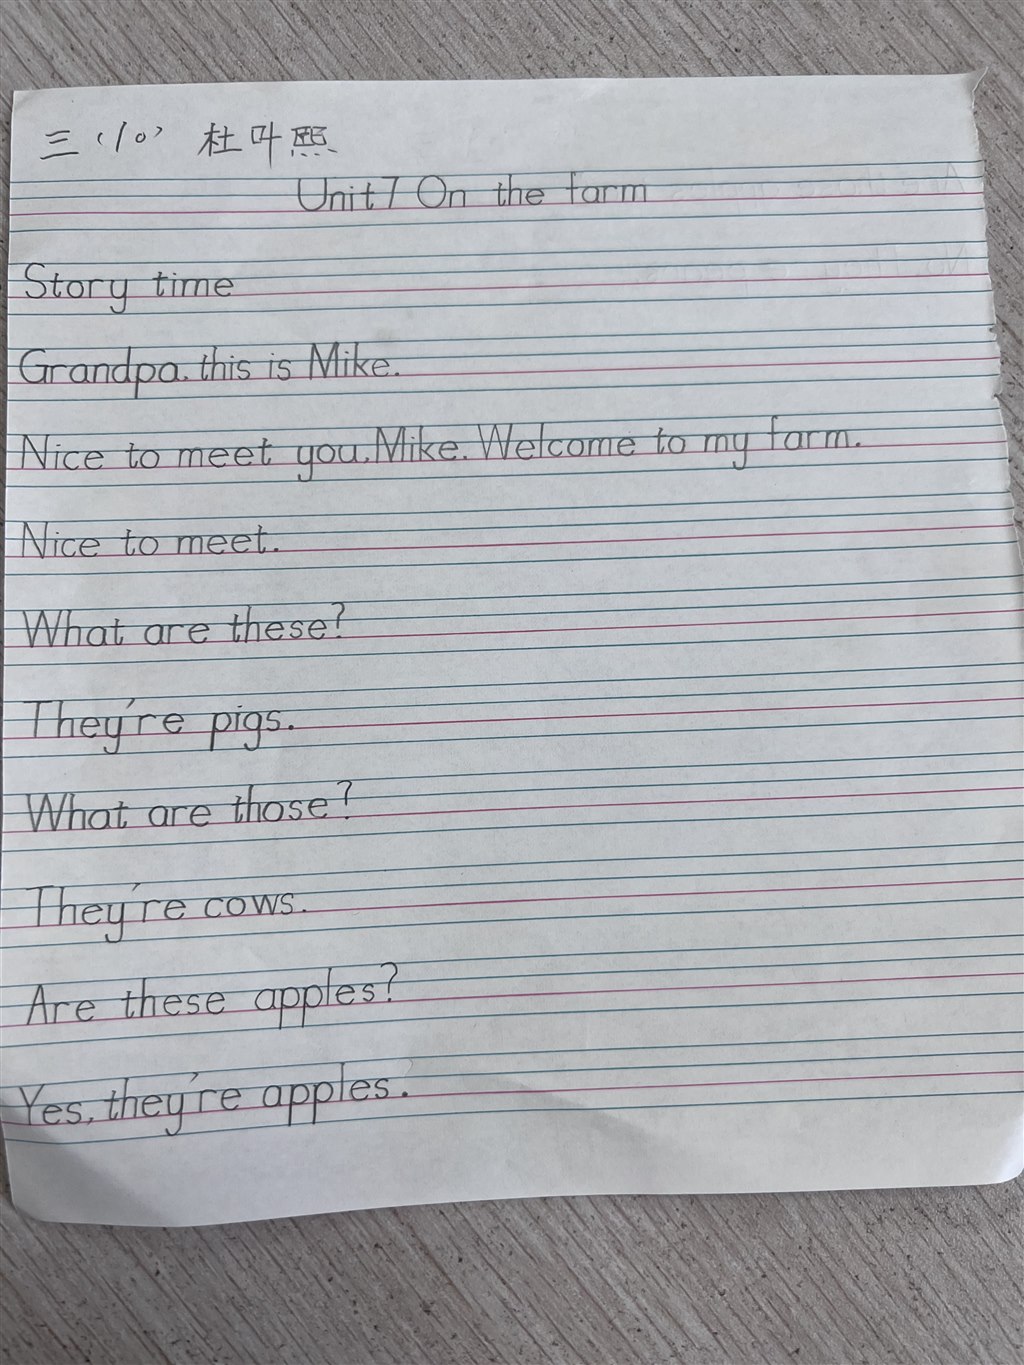 三(10) 杜叶熙
Unit7 On the farm
Story time
Grandpa, this is Mike.
Nice to meet you, Mike. Welcome to my farm.
Nice to meet.
What are these?
They're pigs.
What are those?
They're cows.
Are these apples?
Yes, they're apples.